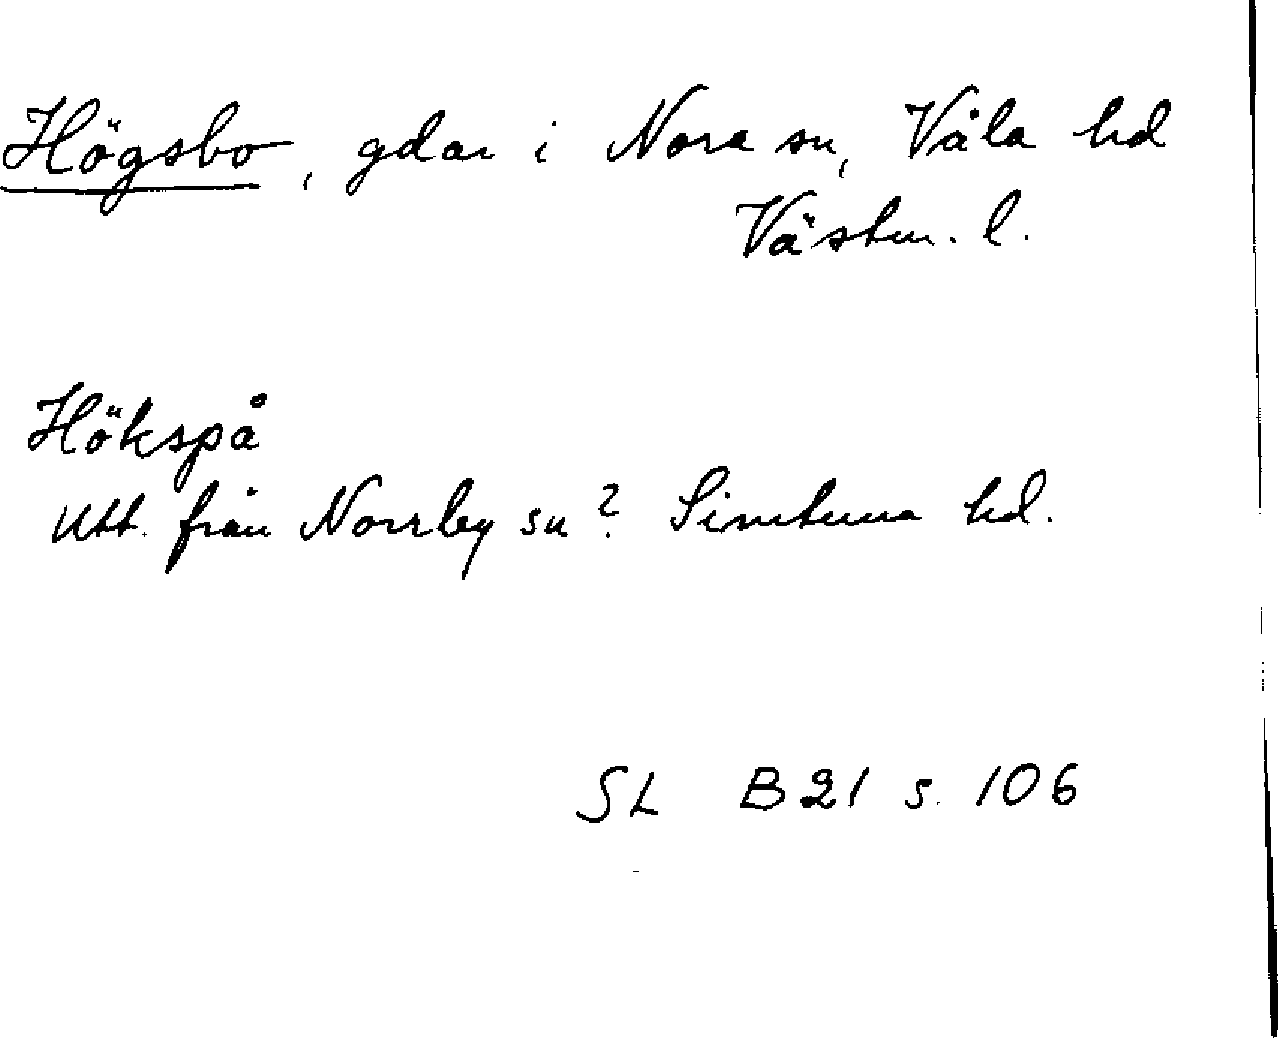 Högsbo, gdar i Nora sn, Våla hd
Västm. l.
Hökspå
utt. från Norrby sn? Simtuna hd.
SL B21 s. 106